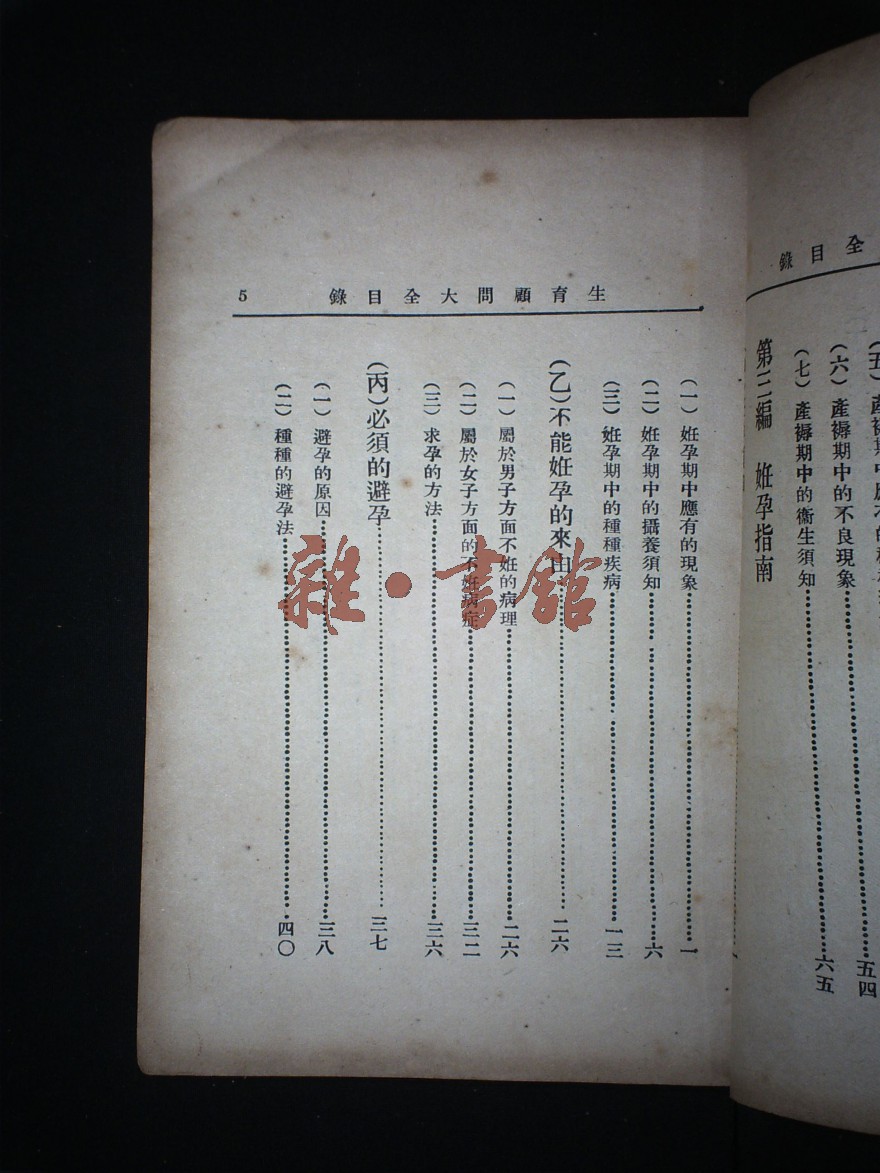 錄目全
(六)產褥期中的不良現象
五四
(七)產褥期中的衞生須知……六五
第三編 姙孕指南
生育顧問大全目錄 5
(一)姙孕期中應有的現象……一
(二)姙孕期中的攝養須知……六
(三)姙孕期中的種種疾病……一三
(乙)不能姙孕的來由……二六
(一)屬於男子方面不姙的病理……二六
(二)屬於女子方面的不姙病症……三二
(三)求孕的方法……三六
(丙)必須的避孕……三七
(一)避孕的原因……三八
(二)種種的避孕法……四〇
雜·書館